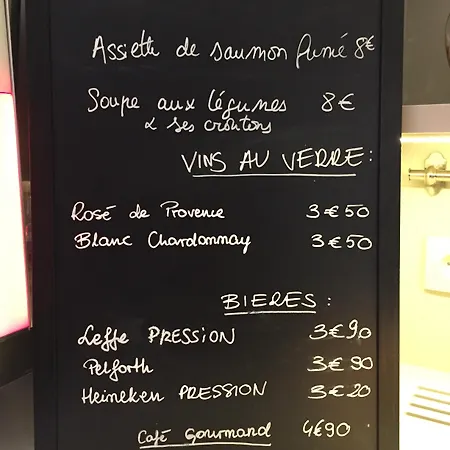 Assiette de saumon fumé 8€
Soupe aux légumes 8€
& ses croûtons
VINS AU VERRE :
Rosé de Provence 3€50
Blanc Chardonnay 3€50
BIERES :
Leffe PRESSION 3€90
Pelforth 3€90
Heineken PRESSION 3€20
Café Gourmand 4€90